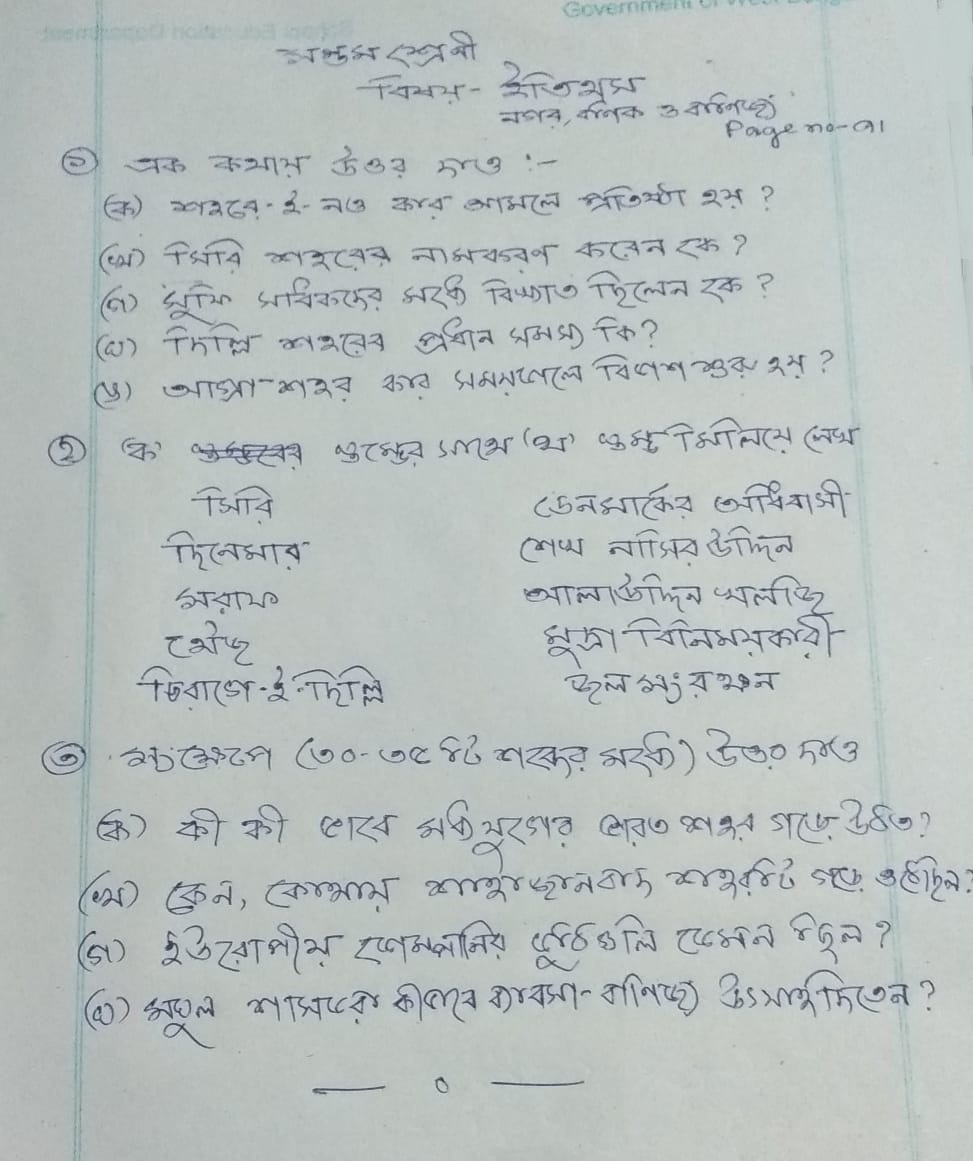 Government of West
সপ্তম শ্রেণী
বিষয় - ইতিহাস
নগর, বণিক ও বাণিজ্য
Page no-৭১
১) এক কথায় উত্তর দাও :-
(ক) শহরে-ই-নও কার আমলে প্রতিষ্ঠা হয় ?
(খ) সিরি শহরের নামকরণ করেন কে ?
(গ) সুফি সাধিকদের মধ্যে বিখ্যাত ছিলেন কে ?
(ঘ) দিল্লি শহরের প্রধান সমস্যা কি ?
(ঙ) আগ্রা শহর কার সময়কালে বিকাশ শুরু হয় ?
২) 'ক' স্তম্ভের সাথে 'খ' স্তম্ভ মিলিয়ে লেখ
সিরি ডেনমার্কের অধিবাসী
দিনেমার শেখ নাসিরউদ্দিন
সরাফ আলাউদ্দিন খলজি
হৌজ মুদ্রা বিনিময়কারী
চিরাগে-ই-দিল্লি জল সংরক্ষন
৩) সংক্ষেপে (৩০-৩৫ টি শব্দের মধ্যে) উত্তর দাও
(ক) কী কী ভাবে মধ্যযুগের ভারত শহর গড়ে উঠত ?
(খ) কেন, কোথায় শাহজাহানবাদ শহরটি গড়ে ওঠেছিল ?
(গ) ইউরোপীয় কোম্পানির কুঠিগুলি কেমন ছিল ?
(ঘ) মুঘল শাসকরা কীভাবে ব্যবসা-বাণিজ্যে উৎসাহ দিতেন ?